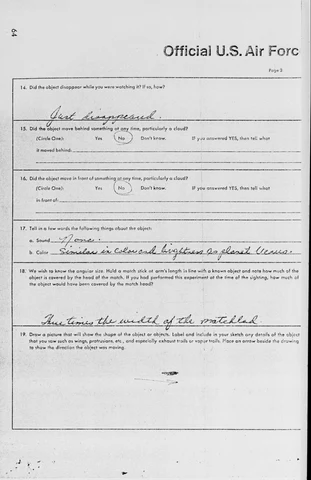 64
Official U.S. Air Forc
Page 5
14. Did the object disappear while you were watching it? If so, how?
Just disappeared.
15. Did the object move behind something at any time, particularly a cloud?
(Circle One): Yes No Don't know. If you answered YES, then tell what
it moved behind:
16. Did the object move in front of something at any time, particularly a cloud?
(Circle One): Yes No Don't know. If you answered YES, then tell what
in front of:
17. Tell in a few words the following things about the object:
a. Sound None.
b. Color Similar in color and brightness as planet Venus.
18. We wish to know the angular size. Hold a match stick at arm's length in line with a known object and note how much of
the object is covered by the head of the match. If you had performed this experiment at the time of the sighting, how much of
the object would have been covered by the match head?
times the width of the matchhead
19. Draw a picture that will show the shape of the object or objects. Label and include in your sketch any details of the object
that you saw such as wings, protrusions, etc., and especially exhaust trails or vapor trails. Place an arrow beside the drawing
to show the direction the object was moving.